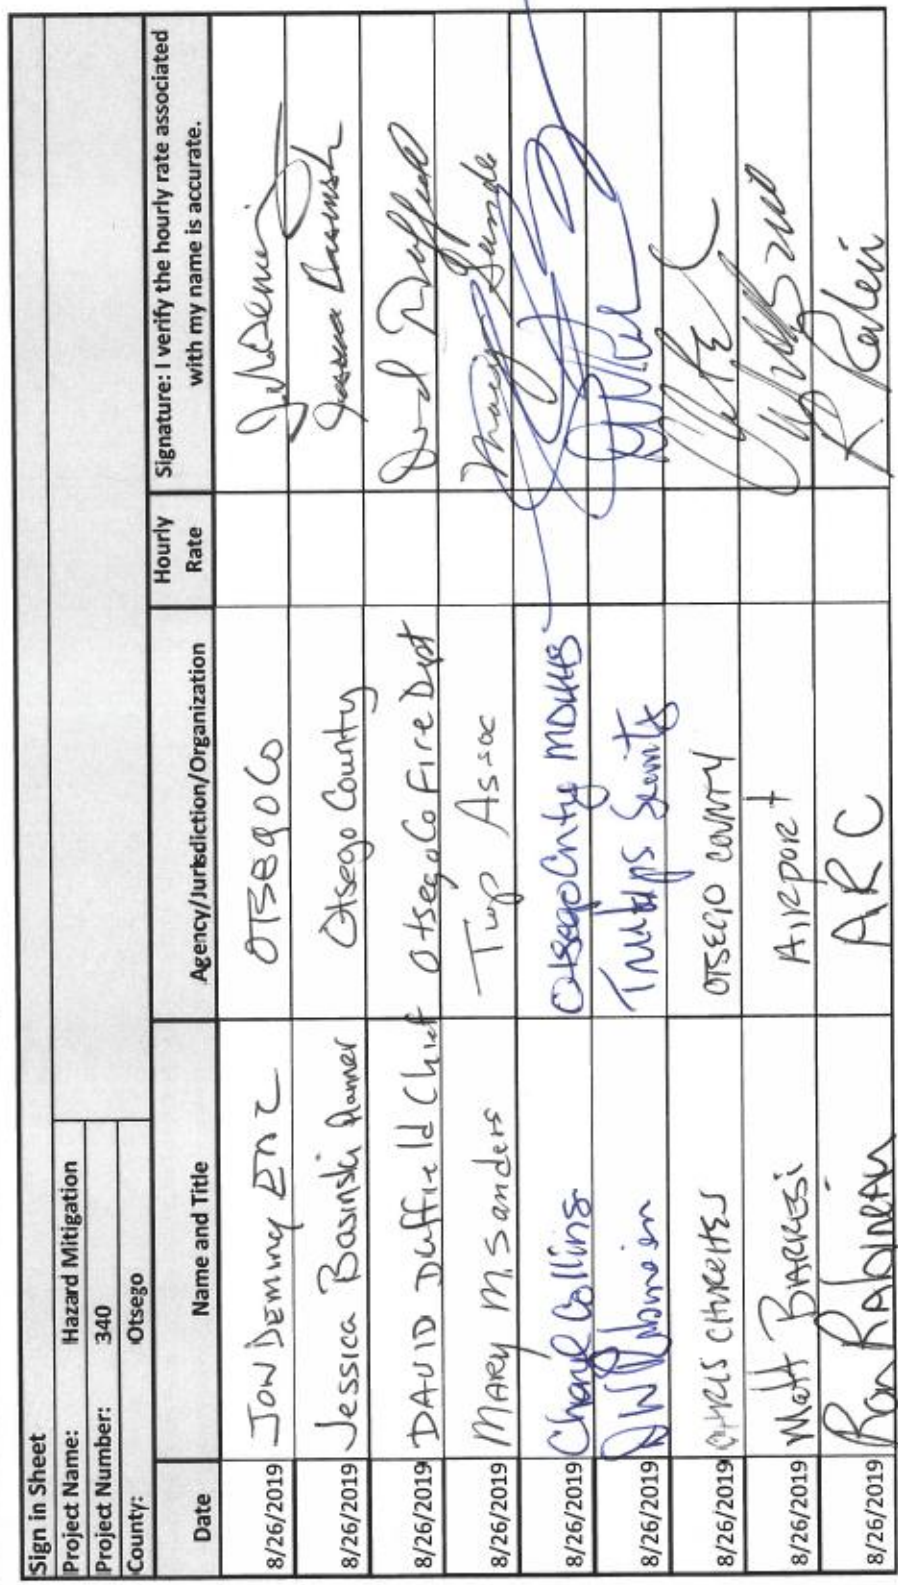 Sign in Sheet
Project Name: Hazard Mitigation
Project Number: 340
County: Otsego
Date Name and Title Agency/Jurisdiction/Organization Hourly Rate Signature: I verify the hourly rate associated with my name is accurate.
8/26/2019 JON DEMING EMC OTSEGO CO
8/26/2019 Jessica Basinski Planner Otsego County
8/26/2019 DAVID Duffield Chief Otsego Co Fire Dept
8/26/2019 MARY M. Sanders Twp Assoc
8/26/2019 Cheryl Collins Otsego Cnty MDHHS
8/26/2019
8/26/2019 CHRIS CHURCHES OTSEGO COUNTY
8/26/2019 Matt BARRESI AIRPORT
8/26/2019 Ron RABINEAU ARC